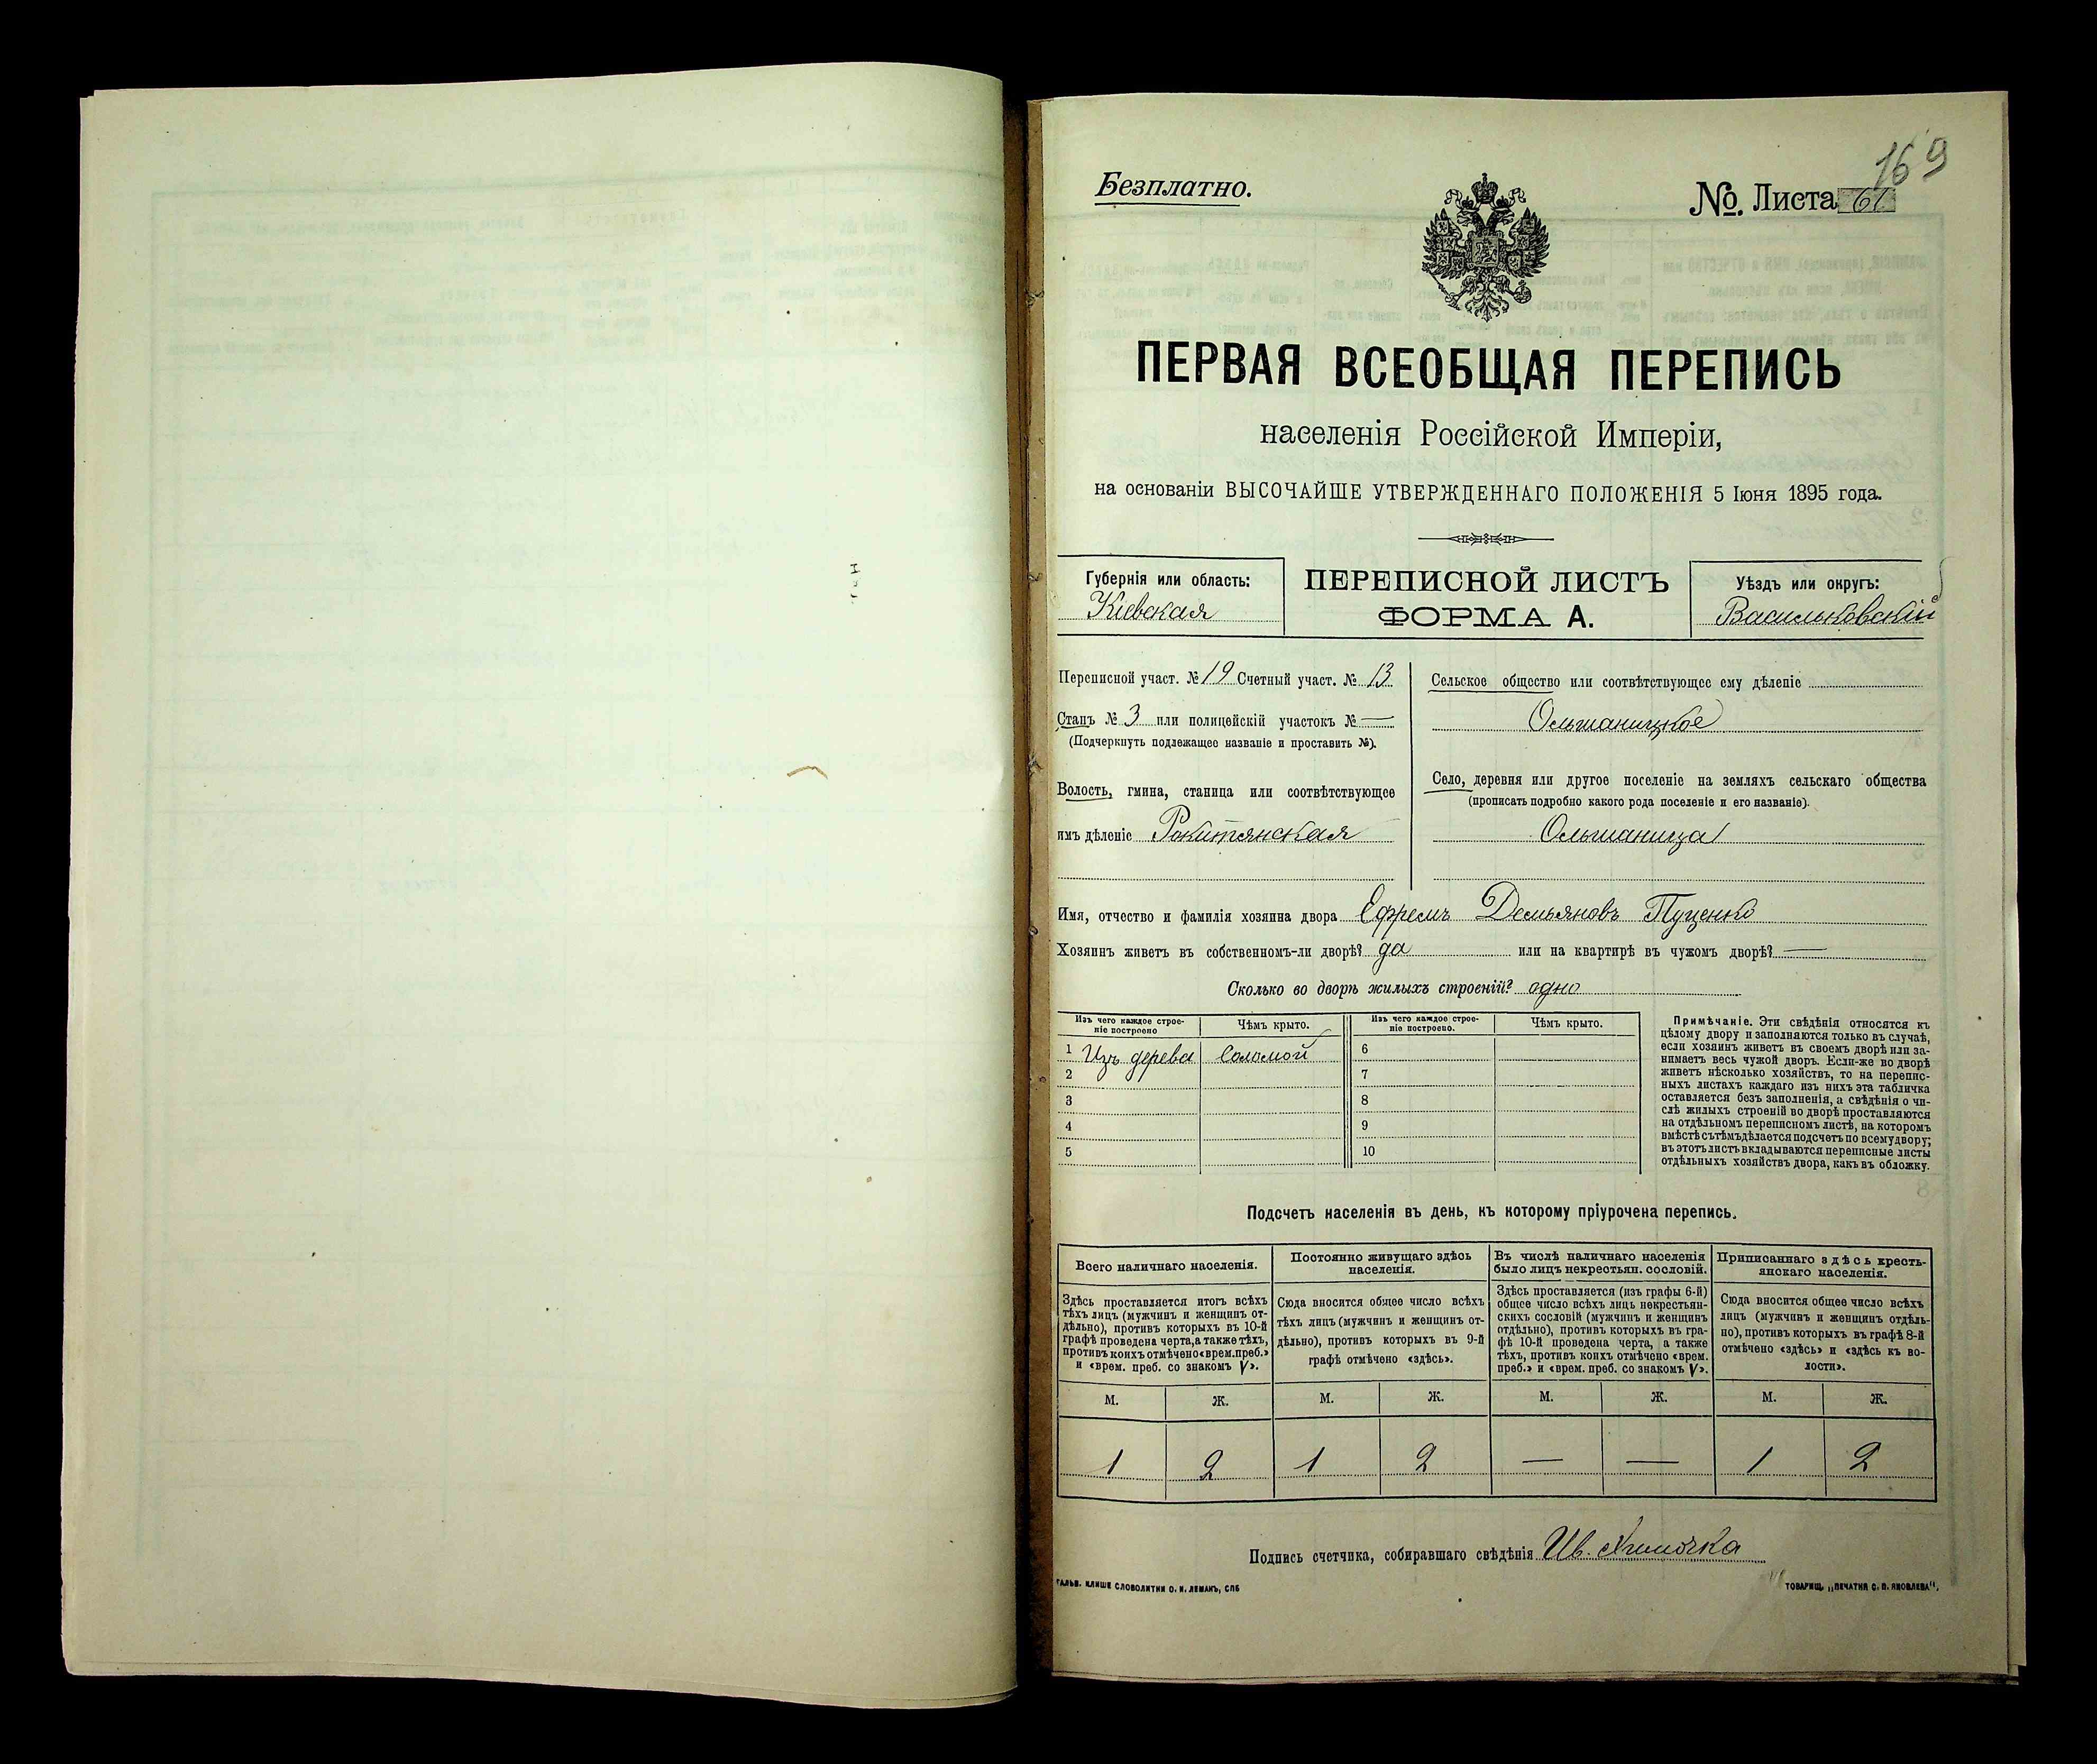 169
Безплатно.
№. Листа 61
ПЕРВАЯ ВСЕОБЩАЯ ПЕРЕПИСЬ
населенія Россійской Имперіи,
на основаніи ВЫСОЧАЙШЕ УТВЕРЖДЕННАГО ПОЛОЖЕНІЯ 5 Іюня 1895 года.
Губернія или область:
Кіевская
ПЕРЕПИСНОЙ ЛИСТЪ
ФОРМА А.
Уѣздъ или округъ:
Васильковскій
Переписной участ. № 19 Счетный участ. № 13
Станъ № 3 или полицейскій участокъ № —
(Подчеркнуть подлежащее названіе и проставить №).
Волость, гмина, станица или соотвѣтствующее
имъ дѣленіе Ракитянская
Сельское общество или соотвѣтствующее ему дѣленіе
Ольшаницкое
Село, деревня или другое поселеніе на земляхъ сельскаго общества
(прописать подробно какого рода поселеніе и его названіе).
Ольшаница
Имя, отчество и фамилія хозяина двора Ефремъ Демьяновъ Пуценко
Хозяинъ живетъ въ собственномъ-ли дворѣ? да или на квартирѣ въ чужомъ дворѣ? —
Сколько во дворѣ жилыхъ строеній? одно
Изъ чего каждое строе-
ніе построено
Чѣмъ крыто.
Изъ чего каждое строе-
ніе построено.
Чѣмъ крыто.
1 Изъ дерева Соломой 6
2 7
3 8
4 9
5 10
Примѣчаніе. Эти свѣдѣнія относятся къ
цѣлому двору и заполняются только въ случаѣ,
если хозяинъ живетъ въ своемъ дворѣ или за-
нимаетъ весь чужой дворъ. Если-же во дворѣ
живетъ нѣсколько хозяйствъ, то на перепис-
ныхъ листахъ каждаго изъ нихъ эта табличка
оставляется безъ заполненія, а свѣдѣнія о чи-
слѣ жилыхъ строеній во дворѣ проставляются
на отдѣльномъ переписномъ листѣ, на которомъ
вмѣстѣ съ тѣмъ дѣлается подсчетъ по всему двору;
въ этотъ листъ вкладываются переписные листы
отдѣльныхъ хозяйствъ двора, какъ въ обложку.
Подсчетъ населенія въ день, къ которому пріурочена перепись.
Всего наличнаго населенія.
Здѣсь проставляется итогъ всѣхъ
тѣхъ лицъ (мужчинъ и женщинъ от-
дѣльно), противъ которыхъ въ 10-й
графѣ проведена черта, а также тѣхъ,
противъ коихъ отмѣчено «врем. преб.»
и «врем. преб. со знакомъ V».
Постоянно живущаго здѣсь
населенія.
Сюда вносится общее число всѣхъ
тѣхъ лицъ (мужчинъ и женщинъ от-
дѣльно), противъ которыхъ въ 9-й
графѣ отмѣчено «здѣсь».
Въ числѣ наличнаго населенія
было лицъ некрестьян. сословій.
Здѣсь проставляется (изъ графы 6-й)
общее число всѣхъ лицъ некрестьян-
скихъ сословій (мужчинъ и женщинъ
отдѣльно), противъ которыхъ въ гра-
фѣ 10-й проведена черта, а также
тѣхъ, противъ коихъ отмѣчено «врем.
преб.» и «врем. преб. со знакомъ V».
Приписаннаго здѣсь кресть-
янскаго населенія.
Сюда вносится общее число всѣхъ
лицъ (мужчинъ и женщинъ отдѣль-
но), противъ которыхъ въ графѣ 8-й
отмѣчено «здѣсь» и «здѣсь къ во-
лости».
М. Ж. М. Ж. М. Ж. М. Ж.
1 2 1 2 — — 1 2
Подпись счетчика, собиравшаго свѣдѣнія Ив.
ГАЛЬВ. КЛИШЕ СЛОВОЛИТНИ О. И. ЛЕМАНЪ, СПБ
ТОВАРИЩ. „ПЕЧАТНЯ С. П. ЯКОВЛЕВА“.